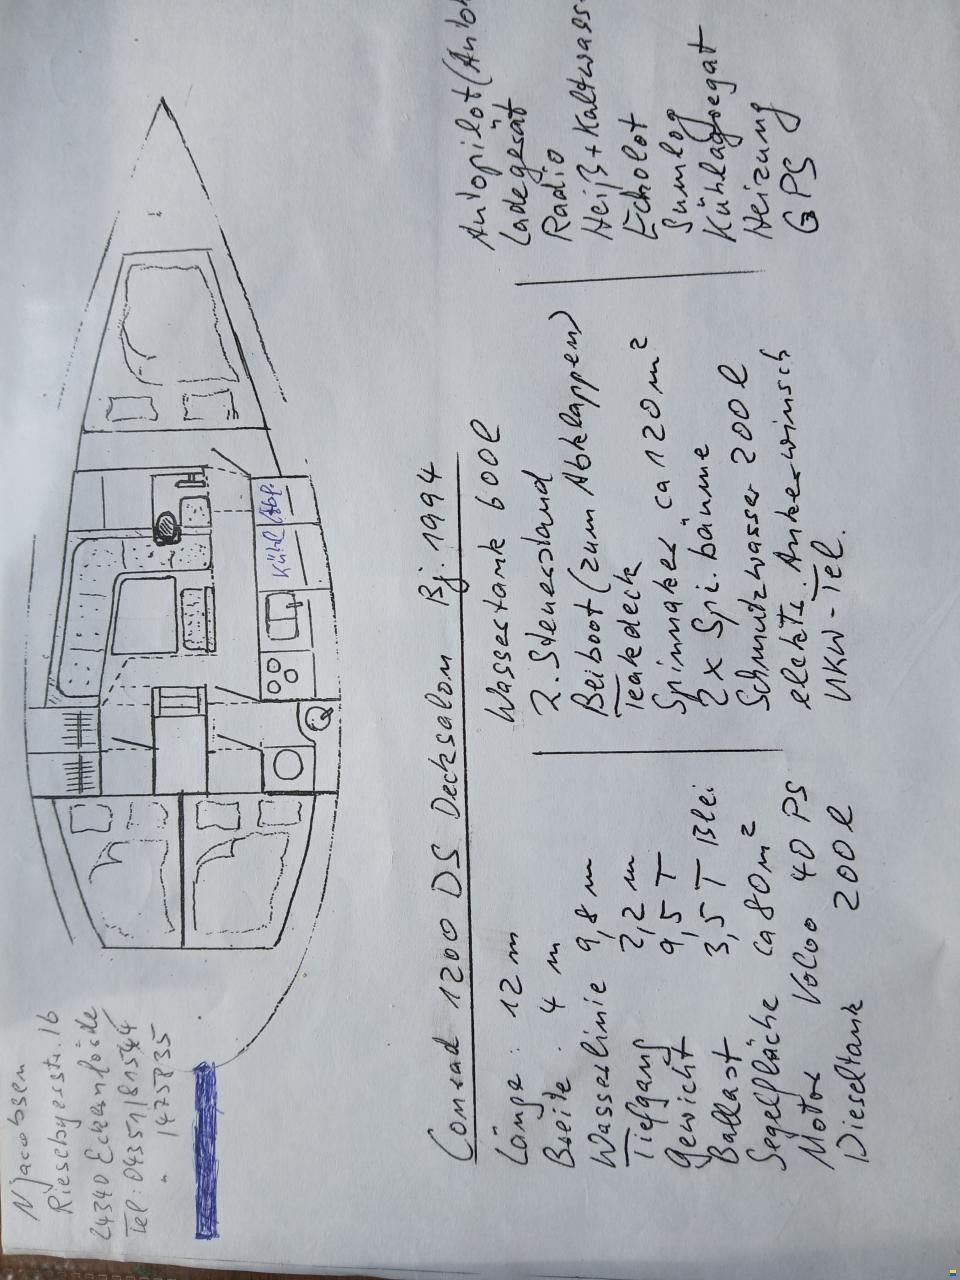 N Jacobsen
Riesebyerstr. 16
24340 Eckernförde
Tel: 04351/81544
" 1475835
Kühl Abl.
Conrad 1200 DS Decksalon Bj. 1994
Länge: 12 m
Breite. 4 m
Wasserlinie 9,8 m
Tiefgang 2,2 m
Gewicht 9,5 T
Ballast 3,5 T Blei
Segelfläche ca 80 m²
Motor Volvo 40 PS
Dieseltank 200 l
Wassertank 600l
2. Steuerstand
Beiboot (zum Abklappen)
Teakdeck
Spinnaker ca 120 m²
2 x Spi. bäume
Schmutzwasser 200 l
elektr. Ankerwinsch
UKW-Tel.
Autopilot (Auto
Ladegerät
Radio
Heiß + Kaltwass
Echolot
Sumlog
Kühlaggregat
Heizung
GPS